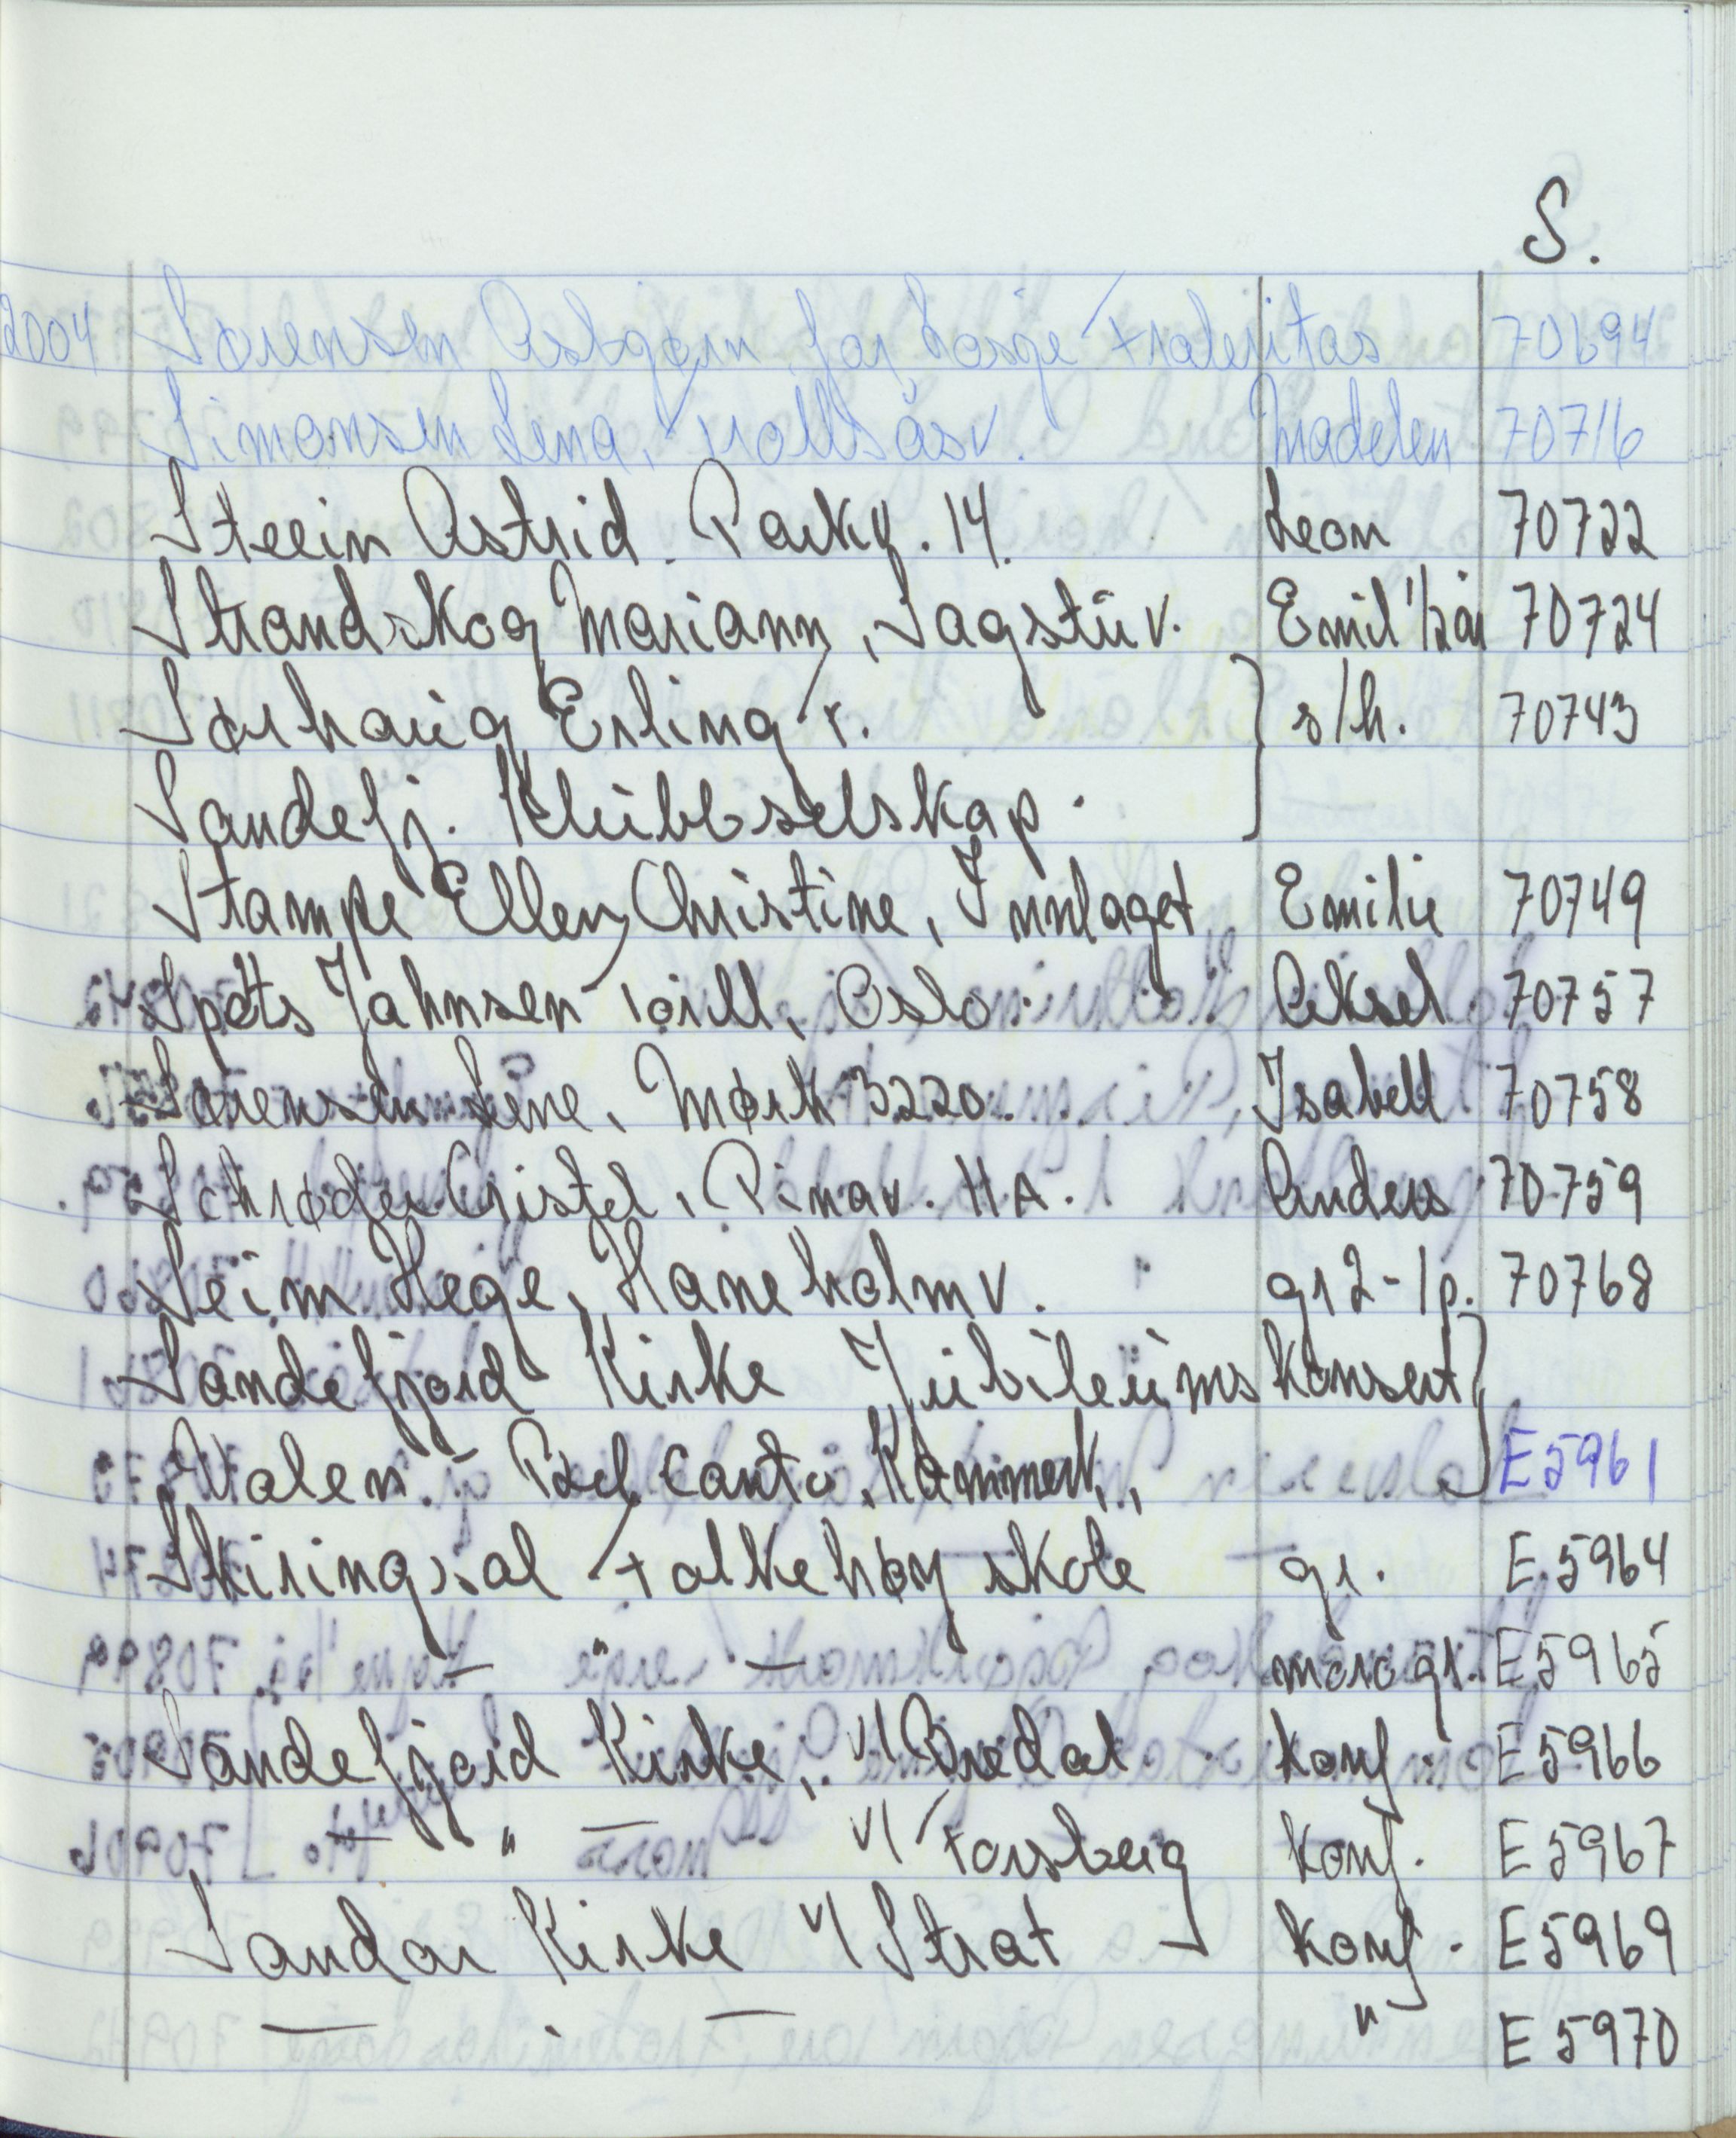 S.
2004 Sørensen Asbjørn for Losje Fraternitas 70694
Simonsen Lena, Trollsåsv. Madelen 70716
Steein Astrid. Parkv. 14. Leon 70722
Strandskog Mariann, Sagstuv. Emil 1/2 år 70724
Sørhaug Erling r. } s/h. 70743
Sandefj. Klubbselskap.
Stampe Ellen Christine, Innlaget Emilie 70749
Spets Jahnsen Toril, Oslo. Aksel 70757
Sørensen Line, Mørk 3220. Isabell 70758
Schrøder Cristel, Pinav. 11A. Anders 70759
Seim Hege, Haneholmv. gr 2-1p. 70768
Sandefjord Kirke Jubileums konsert }
Valen - Bel Canto, Kammerk., E5961
Skiringsal Folkehøy skole gr. E.5964
— " — moro gr. E5965
Sandefjord Kirke, v/ Bredal konf. E5966
— " — v/ Forsberg konf. E5967
Sandar Kirke v/ Strat konf. E5969
— — " E5970